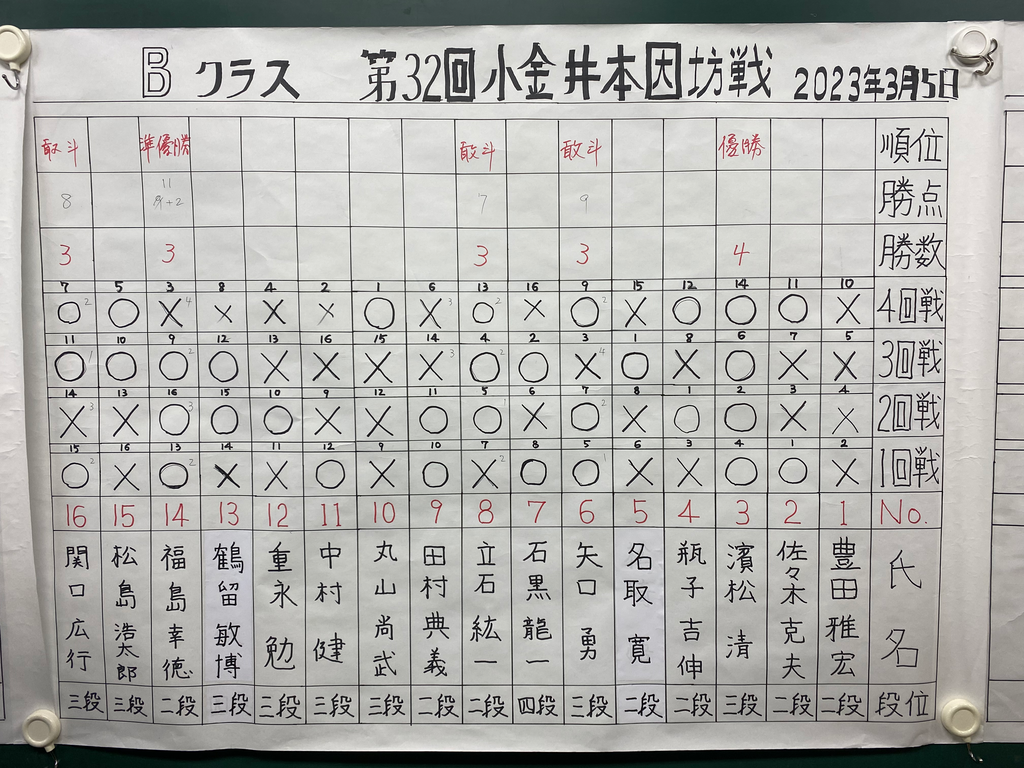 Bクラス 第32回小金井本因坊戦 2023年3月5日
敢斗 準優勝 敢斗 敢斗 優勝 順位
8 11 9+2 7 9 勝点
3 3 3 3 4 勝数
7 5 3 8 4 2 1 6 13 16 9 15 12 14 11 10
○2 ○ ×4 × × × ○ ×3 ○2 × ○2 × ○ ○ ○ × 4回戦
11 10 9 12 13 16 15 14 4 2 3 1 8 6 7 5
○1 ○ ○2 ○ × × × ×3 ○2 ○ ×4 ○ × ○ × × 3回戦
14 13 16 15 10 9 12 11 5 6 7 8 1 2 3 4
×3 × ○3 ○ ○ × × ○ ○1 × ○2 × ○ ○ × × 2回戦
15 16 13 14 11 12 9 10 7 8 5 6 3 4 1 2
○2 × ○2 × × ○ × ○ ×2 ○ ○1 × × ○ ○ × 1回戦
16 15 14 13 12 11 10 9 8 7 6 5 4 3 2 1 No.
関口広行 松島浩太郎 福島幸徳 鶴留敏博 重永勉 中村健 丸山尚武 田村典義 立石紘一 石黒龍一 矢口勇 名取寛 瓶子吉伸 濱松清 佐々木克夫 豊田雅宏 氏名
三段 三段 二段 三段 三段 三段 三段 二段 二段 四段 三段 二段 二段 三段 二段 二段 段位